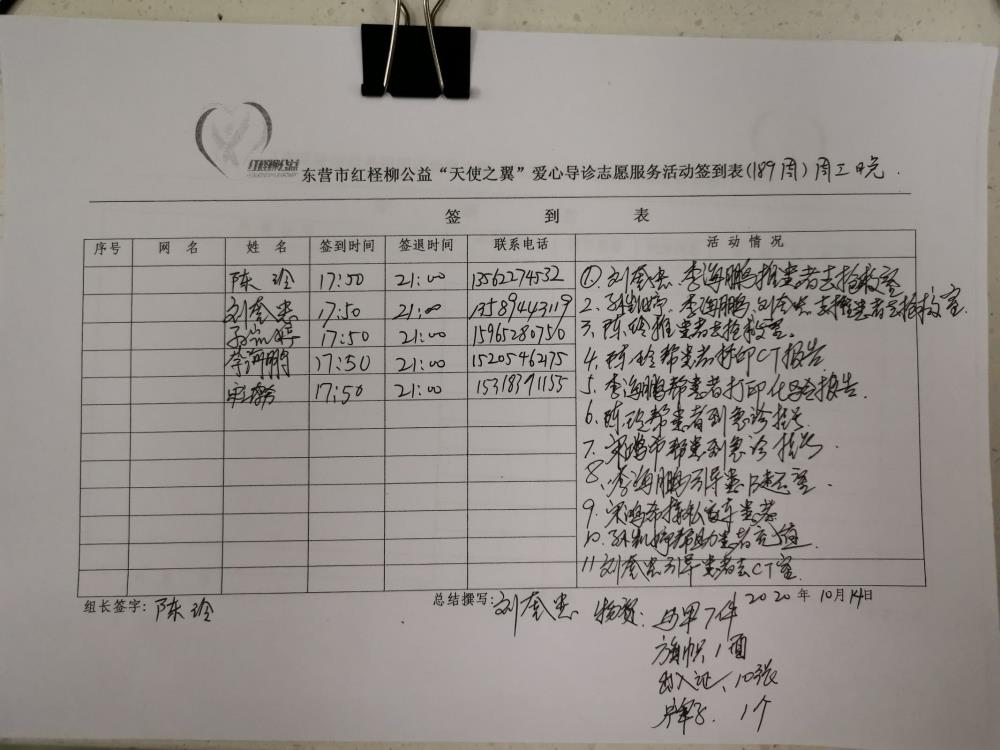 红柽柳公益
东营市红柽柳公益“天使之翼”爱心导诊志愿服务活动签到表(189周)周三晚.
签 到 表
序号 网 名 姓 名 签到时间 签退时间 联系电话 活动情况
陈玲 17:50 21:00 13562274532
刘奎忠 17:50 21:00 13589443119
17:50 21:00 15965280750
李海鹏 17:50 21:00 15205462175
宋鸿希 17:50 21:00 15318391155
①.刘奎忠、李海鹏推患者去抢救室
2.李海鹏、刘奎忠去推患者去抢救室.
3.陈玲推患者去抢救室.
4.陈玲帮患者打印CT报告
5.李海鹏帮患者打印化验报告.
6.陈玲帮患者到急诊挂号
7.宋鸿希帮患到急诊挂号.
8、李海鹏引导患B超室.
9.宋鸿希接私家车患者
10.帮助患者充值.
11刘奎忠引导患者去CT室.
组长签字:陈玲 总结撰写:刘奎忠 2020年10月14日
物资:马甲7件
旗帜1面
出入证、10张
牌子.1个